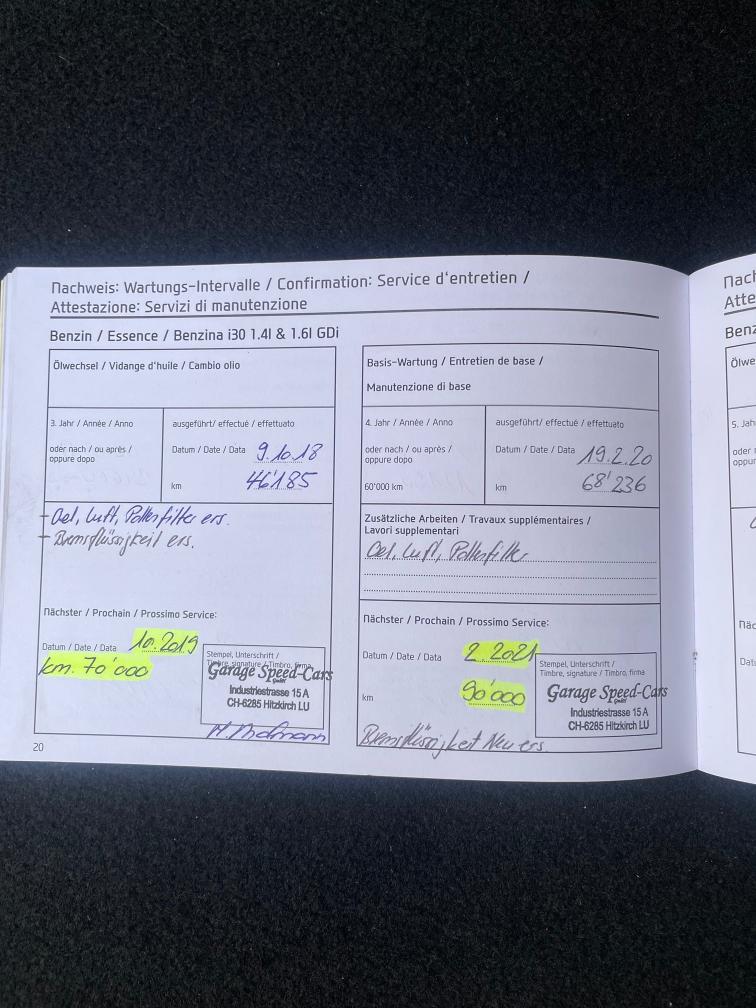 Nachweis: Wartungs-Intervalle / Confirmation: Service d'entretien /
Attestazione: Servizi di manutenzione
Benzin / Essence / Benzina i30 1.4l & 1.6l GDi
Ölwechsel / Vidange d'huile / Cambio olio
3. Jahr / Année / Anno
oder nach / ou après /
oppure dopo
ausgeführt/ effectué / effettuato
Datum / Date / Data 9.10.18
km 46'185
- Oel, Luft, Pollenfilter ers.
- Bremsflüssigkeit ers.
Nächster / Prochain / Prossimo Service:
Datum / Date / Data 10.2019
km. 70'000
Stempel, Unterschrift /
Timbre, signature / Timbro, firma
Garage Speed-Cars
GmbH
Industriestrasse 15 A
CH-6285 Hitzkirch LU
20
Basis-Wartung / Entretien de base /
Manutenzione di base
4. Jahr / Année / Anno
oder nach / ou après /
oppure dopo
60'000 km
ausgeführt/ effectué / effettuato
Datum / Date / Data 19.2.20
km 68'236
Zusätzliche Arbeiten / Travaux supplémentaires /
Lavori supplementari
Oel, Luft, Pollenfilter
Nächster / Prochain / Prossimo Service:
Datum / Date / Data 2.2021
km 90'000
Stempel, Unterschrift /
Timbre, signature / Timbro, firma
Garage Speed-Cars
GmbH
Industriestrasse 15 A
CH-6285 Hitzkirch LU
Bremsflüssigkeit Neu ers.
Nach
Atte
Benz
Ölwe
5. Jah
oder
oppur
Näc
Dat